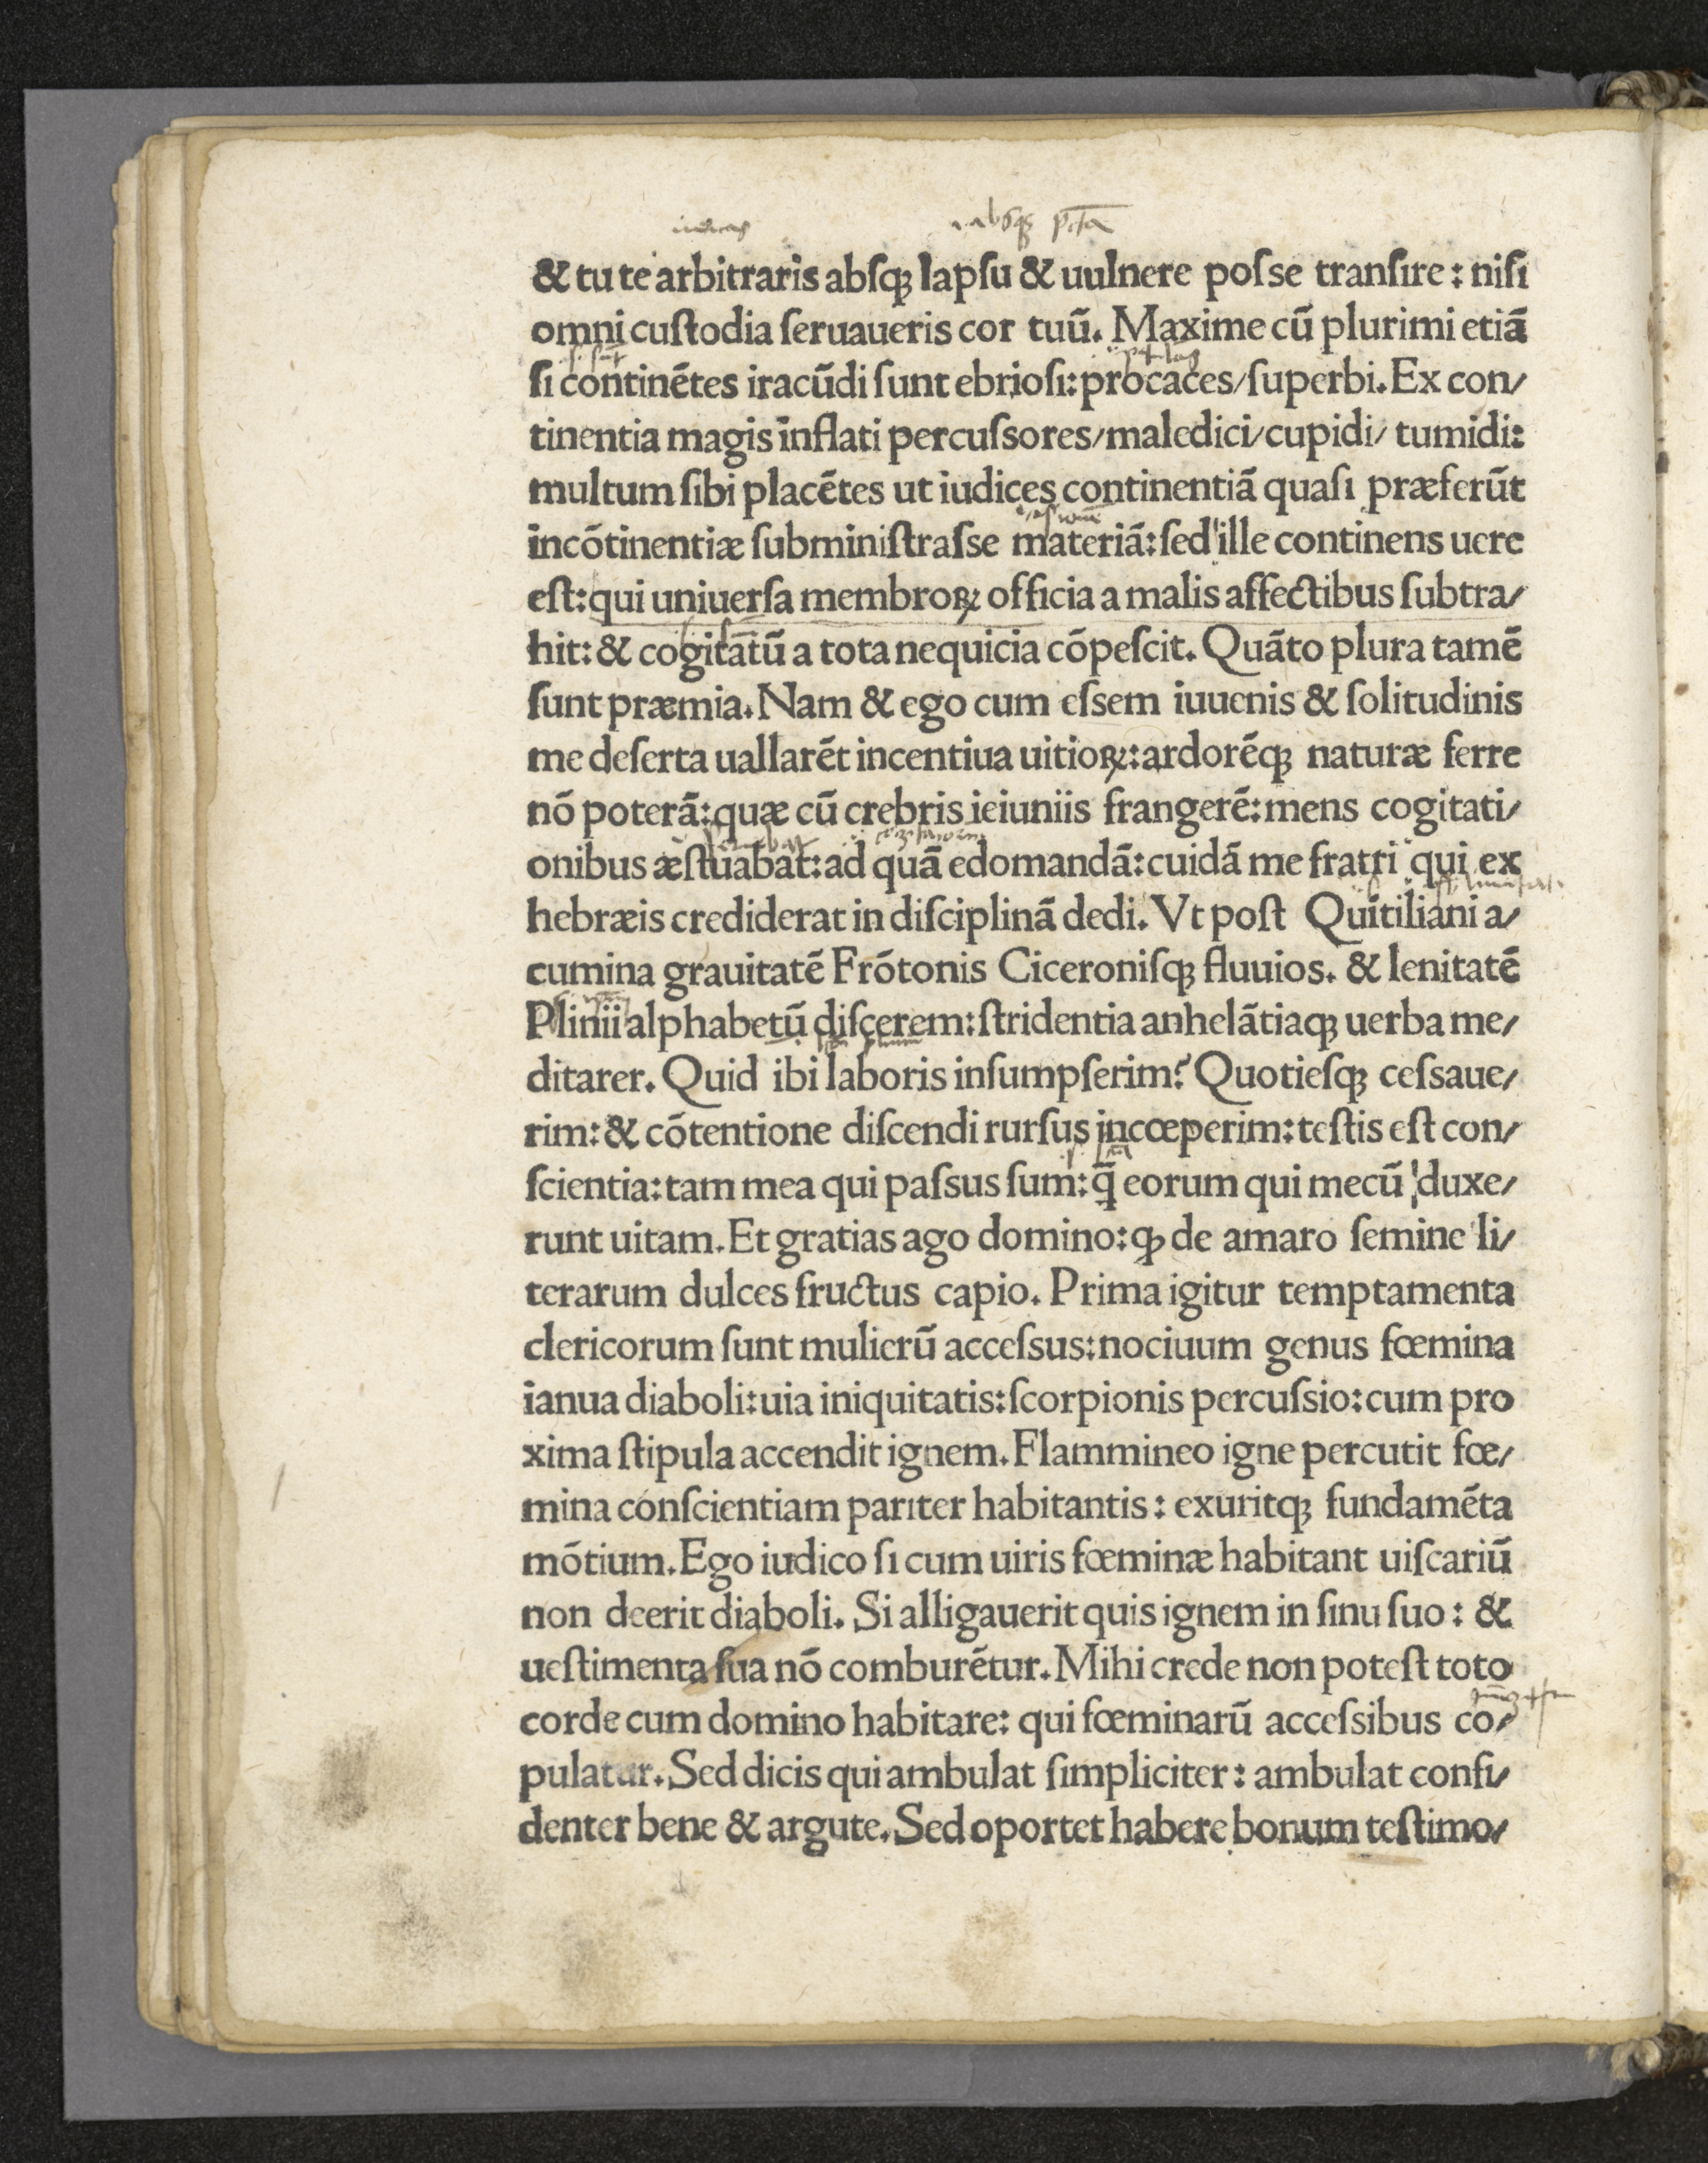 & tu te arbitraris abſqꝫ lapſu & uulnere poſse tranſire : niſi
omni cuſtodia ſeruaueris cor tuū. Maxime cū plurimi etiā
ſi continētes iracūdi ſunt ebrioſi: procaces/ ſuperbi. Ex con/
tinentia magis inflati percuſsores/ maledici/ cupidi/ tumidi:
multum ſibi placētes ut iudices continentiā quaſi præferūt
incōtinentiæ ſubminiſtraſse materiā: ſed ille continens uere
eſt: qui uniuerſa membroꝝ officia a malis affectibus ſubtra/
hit: & cogitatū a tota nequicia cōpeſcit. Quāto plura tamē
ſunt præmia. Nam & ego cum eſsem iuuenis & ſolitudinis
me deſerta uallarēt incentiua uitioꝝ: ardorēqꝫ naturæ ferre
nō poterā: quæ cū crebris ieiuniis frangerē: mens cogitati/
onibus æſtuabat: ad quā edomandā: cuidā me fratri qui ex
hebræis crediderat in diſciplinā dedi. Vt poſt Quītiliani a/
cumina grauitatē Frōtonis Ciceroniſqꝫ fluuios. & lenitatē
Plinii alphabetū diſcerem: ſtridentia anhelātiaqꝫ uerba me/
ditarer. Quid ibi laboris inſumpſerim? Quotieſqꝫ ceſsaue/
rim: & cōtentione diſcendi rurſus incœperim: teſtis eſt con/
ſcientia: tam mea qui paſsus ſum: q̄ eorum qui mecū duxe/
runt uitam. Et gratias ago domino: ꝙ de amaro ſemine li/
terarum dulces fructus capio. Prima igitur temptamenta
clericorum ſunt mulierū acceſsus: nociuum genus fœmina
ianua diaboli: uia iniquitatis: ſcorpionis percuſsio: cum pro
xima ſtipula accendit ignem. Flammineo igne percutit fœ/
mina conſcientiam pariter habitantis : exuritqꝫ fundamēta
mōtium. Ego iudico ſi cum uiris fœminæ habitant uiſcariū
non deerit diaboli. Si alligauerit quis ignem in ſinu ſuo : &
ueſtimenta ſua nō comburētur. Mihi crede non poteſt toto
corde cum domino habitare: qui fœminarū acceſsibus co/
pulatur. Sed dicis qui ambulat ſimpliciter : ambulat confi/
denter bene & argute. Sed oportet habere bonum teſtimo/